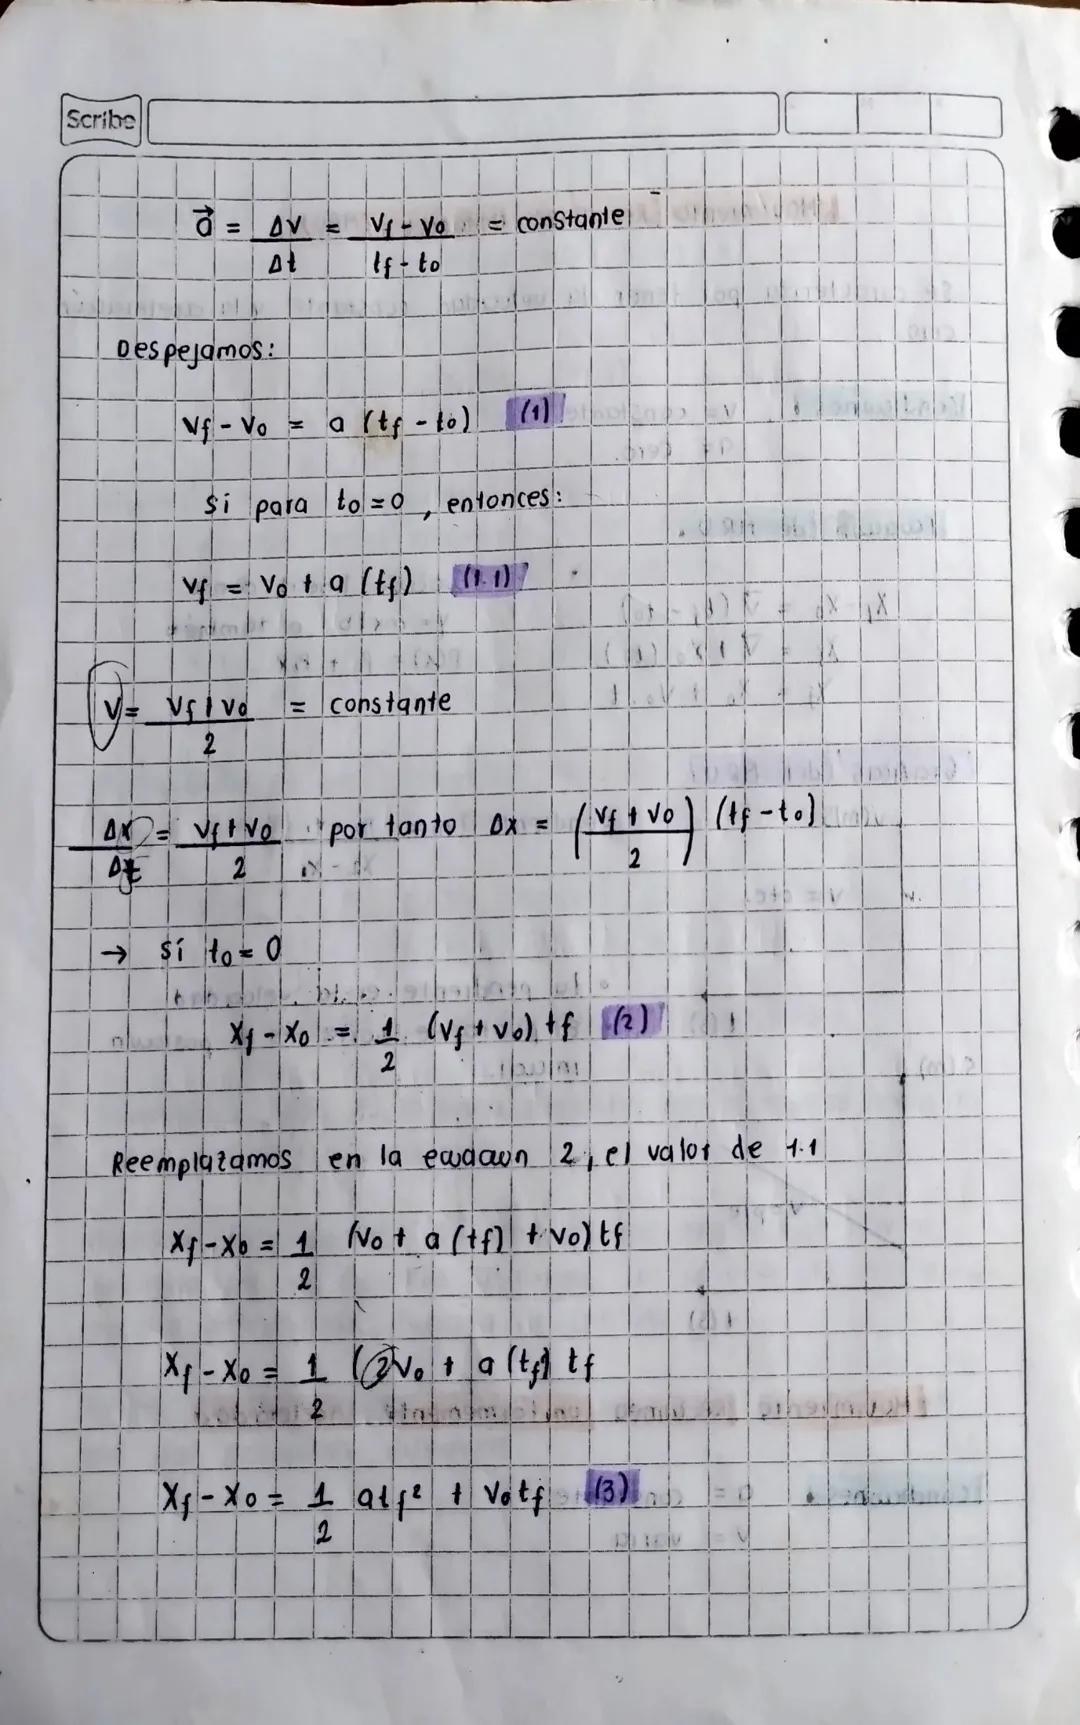 Scribe
a⃗ = Δv/Δt = (Vf - Vo)/(tf - to) = constante
Despejamos:
Vf - Vo = a (tf - to) (1)
Sí para to = 0, entonces:
Vf = Vo + a (tf) (1.1)
V = (Vf + Vo)/2 = constante
Δx/Δt = (Vf + Vo)/2 por tanto Δx = ((Vf + Vo)/2) (tf - to)
→ Sí to = 0
Xf - Xo = 1/2 (Vf + Vo) tf (2)
Reemplazamos en la ecuación 2, el valor de 1.1
Xf - Xo = 1/2 (Vo + a (tf) + Vo) tf
Xf - Xo = 1/2 (2Vo + a (tf) tf
Xf - Xo = 1/2 atf² + Vo tf (3)